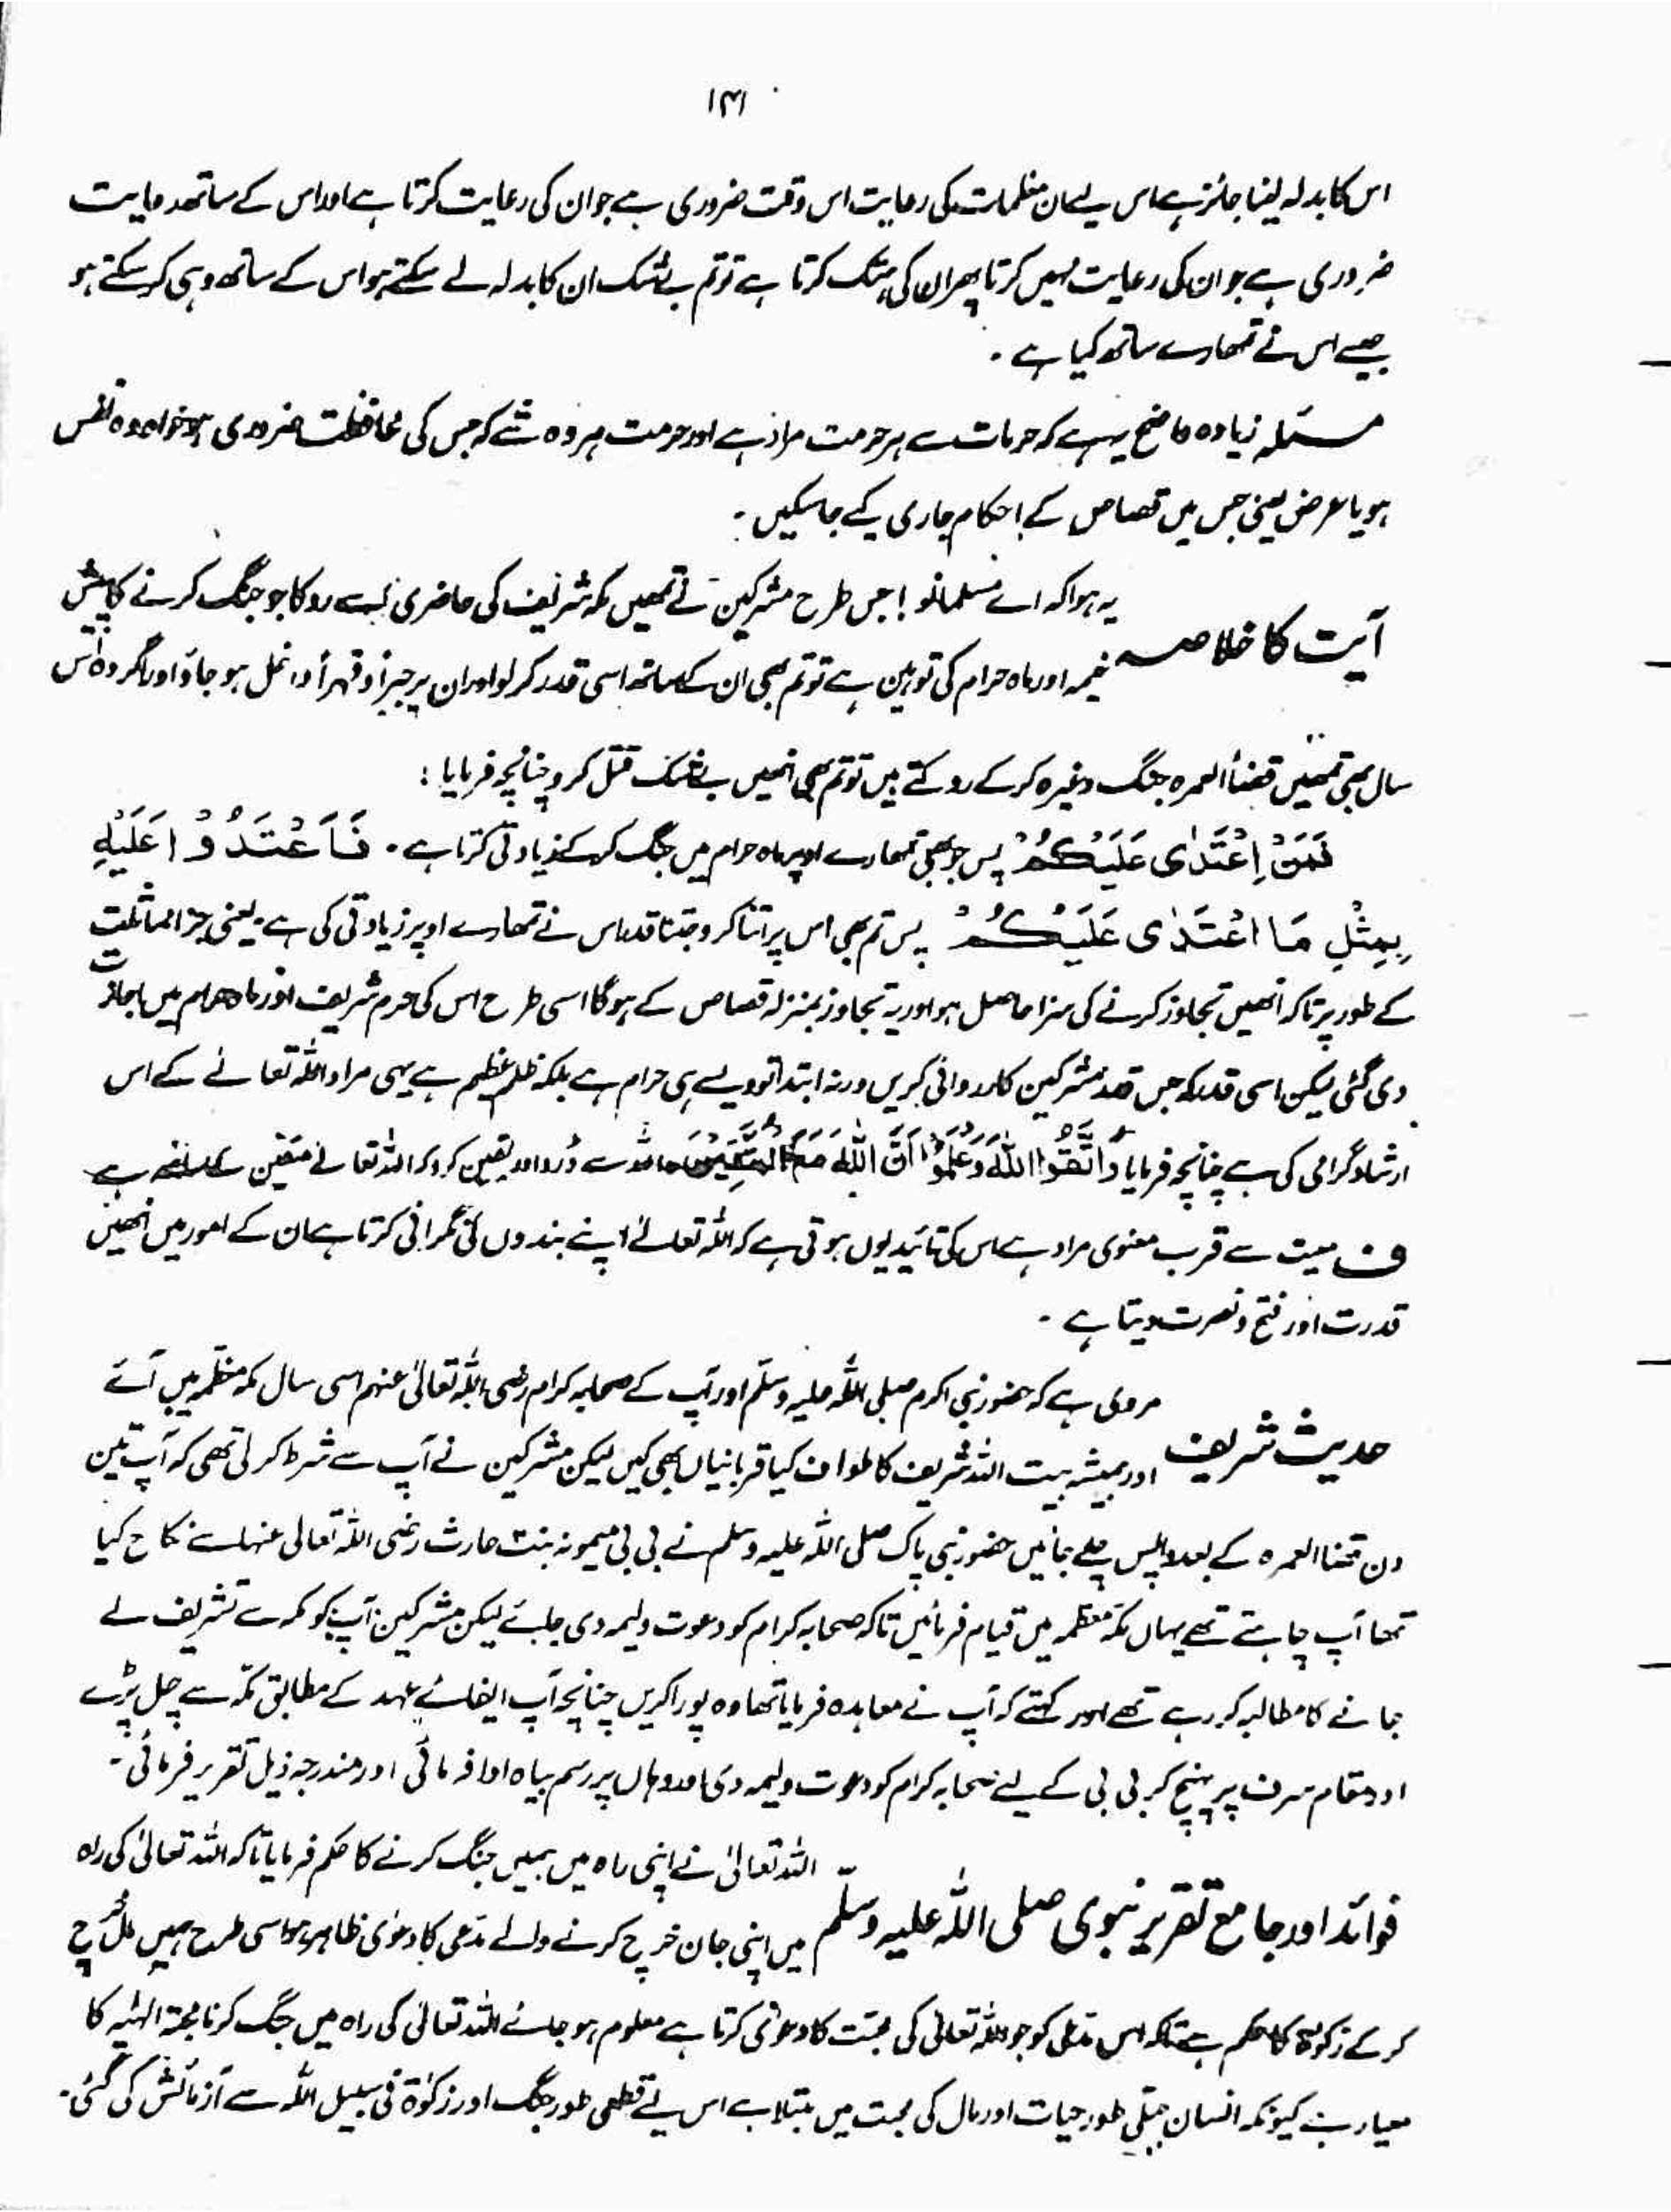 ۱۳۱
اس کا بدلہ لینا جائز ہے اس لیے ان منظمات کی رعایت اس وقت ضروری ہے جو ان کی رعایت کرتا ہے اور اس کے ساتھ رعایت
ضروری ہے جو ان کی رعایت نہیں کرتا پھر ان کی ہتک کرتا ہے تو تم بے شک ان کا بدلہ لے سکتے ہو اس کے ساتھ وہی کر سکتے ہو
جیسے اس نے تمھارے ساتھ کیا ہے ۔
مسئلہ زیادہ واضح یہ ہے کہ حرمات سے ہر حرمت مراد ہے اور حرمت ہر وہ شے کہ جس کی محافظت ضروری ہو خواہ وہ نفس
ہو یا عرض یعنی جس میں قصاص کے احکام جاری کیے جا سکیں ۔
یہ ہوا کہ اے مسلمانو ! جس طرح مشرکین نے تمھیں مکہ شریف کی حاضری سے روکا جو جنگ کرنے کا پیش
آیت کا خلاصہ
خیمہ اور ماہ حرام کی توہین ہے تو تم بھی ان کے ساتھ اسی قدر کر لو اور ان پر جبراً و قہراً داخل ہو جاؤ اور اگر وہ اس
سال بھی تمھیں قضاء العمرہ جنگ وغیرہ کر کے روکتے ہیں تو تم بھی انھیں بے شک قتل کرو چنانچہ فرمایا :
فَمَنِ اعْتَدٰى عَلَيْكُمْ پس جو بھی تمھارے اوپر ماہ حرام میں جنگ کر کے زیادتی کرتا ہے ۔ فَاعْتَدُوْا عَلَيْهِ
بِمِثْلِ مَا اعْتَدٰى عَلَيْكُمْ پس تم بھی اس پر اتنا کرو جتنا قدر اس نے تمھارے اوپر زیادتی کی ہے ۔ یعنی جزا مماثلت
کے طور پر تاکہ انھیں تجاوز کرنے کی سزا حاصل ہو اور یہ تجاوز بمنزلہ قصاص کے ہوگا اسی طرح اس کی حرم شریف اور ماہ حرام میں اجازت
دی گئی لیکن اسی قدر کہ جس قدر مشرکین کارروائی کریں ورنہ ابتداً تو ویسے ہی حرام ہے بلکہ ظلم عظیم ہے یہی مراد اللہ تعالےٰ کے اس
ارشاد گرامی کی ہے چنانچہ فرمایا وَاتَّقُوا اللهَ وَاعْلَمُوْا اَنَّ اللهَ مَعَ الْمُتَّقِيْنَ اللہ سے ڈرو اور یقین کرو کہ اللہ تعالےٰ متقین کے ساتھ ہے
ف معیت سے قرب معنوی مراد ہے اس کی تائید یوں ہوتی ہے کہ اللہ تعالےٰ اپنے بندوں کی نگرانی کرتا ہے ان کے امور میں انھیں
قدرت اور فتح و نصرت دیتا ہے ۔
مروی ہے کہ حضور نبی اکرم صلی اللہ علیہ وسلم اور آپ کے صحابہ کرام رضی اللہ تعالیٰ عنہم اسی سال مکہ معظمہ میں آئے
حدیث شریف
اور ہمیشہ بیت اللہ شریف کا طواف کیا قربانیاں بھی کیں لیکن مشرکین نے آپ سے شرط کر لی تھی کہ آپ تین
دن قضا العمرہ کے بعد واپس چلے جائیں حضور نبی پاک صلی اللہ علیہ وسلم نے بی بی میمونہ بنت حارث رضی اللہ تعالیٰ عنہا سے نکاح کیا
تھا آپ چاہتے تھے یہاں مکہ معظمہ میں قیام فرمائیں تاکہ صحابہ کرام کو دعوت ولیمہ دی جائے لیکن مشرکین آپ کو مکہ سے تشریف لے
جانے کا مطالبہ کر رہے تھے اور کہتے کہ آپ نے معاہدہ فرمایا تھا وہ پورا کریں چنانچہ آپ ایفائے عہد کے مطابق مکہ سے چل پڑے
اور مقام سرف پر پہنچ کر بی بی کے لیے صحابہ کرام کو دعوت ولیمہ دی اور وہاں پر رسم بیاہ ادا فرمائی اور مندرجہ ذیل تقریر فرمائی ۔
اللہ تعالیٰ نے اپنی راہ میں ہمیں جنگ کرنے کا حکم فرمایا تاکہ اللہ تعالیٰ کی راہ
فوائد اور جامع تقریر نبوی صلی اللہ علیہ وسلّم
میں اپنی جان خرچ کرنے والے مدعی کا دعویٰ ظاہر ہو اسی طرح ہمیں مال خرچ
کر کے زکوٰۃ کا حکم ہے تاکہ اس مدعی کو جو اللہ تعالیٰ کی محبت کا دعویٰ کرتا ہے معلوم ہو جائے اللہ تعالیٰ کی راہ میں جنگ کرنا محبۃ الٰہیہ کا
معیار ہے کیونکہ انسان جبلّی طور حیات اور مال کی محبت میں مبتلا ہے اس لیے قطعی طور جنگ اور زکوٰۃ فی سبیل اللہ سے آزمائش کی گئی ۔